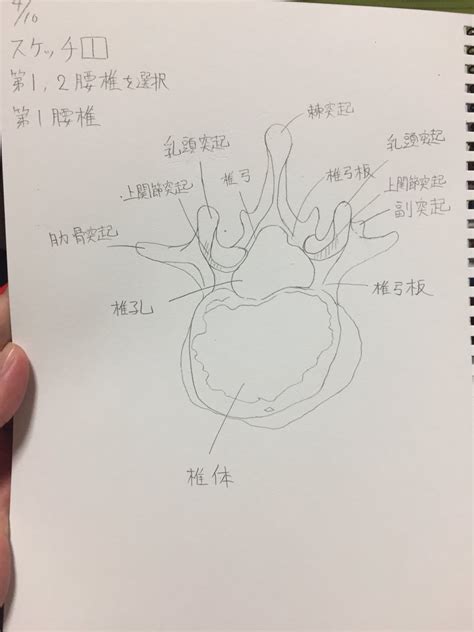 4/10
スケッチ1
第1,2腰椎を選択
第1腰椎
棘突起
乳頭突起
乳頭突起
椎弓
椎弓板
上関節突起
上関節突起
副突起
肋骨突起
椎孔
椎弓板
椎体